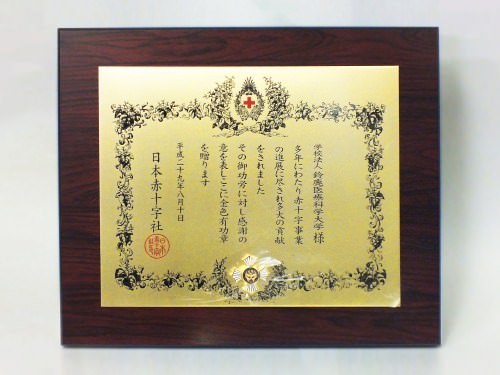 学校法人 鈴鹿医療科学大学 様
多年にわたり赤十字事業
の進展に尽され多大の貢献
をされました
その御功労に対し感謝の
意を表しここに金色有功章
を贈ります
平成二十九年八月十日
日本赤十字社